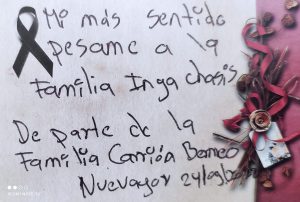 Mi más sentido
pesame a la
Familia Inga chasis
De parte de la
Familia Carrión Berneo
Nuevayor 24/09/